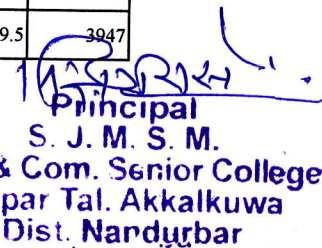 9.5 3947
Principal
S. J. M. S. M.
& Com. Senior College
par Tal. Akkalkuwa
Dist. Nandurbar